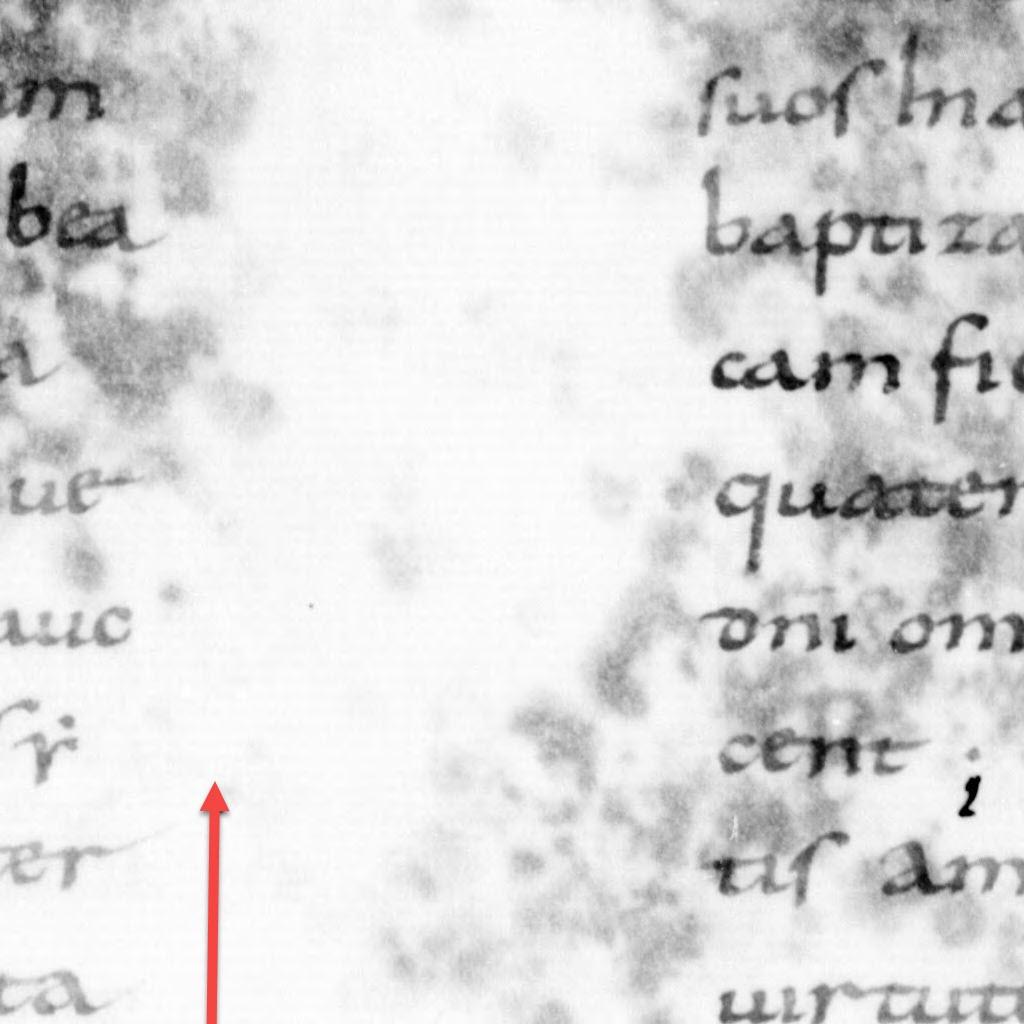 am
bea
a
ue
auc
s r
ter
ta
suos Ina
baptiza
cam fic
quater
dni om
cent
tis am
uirtut